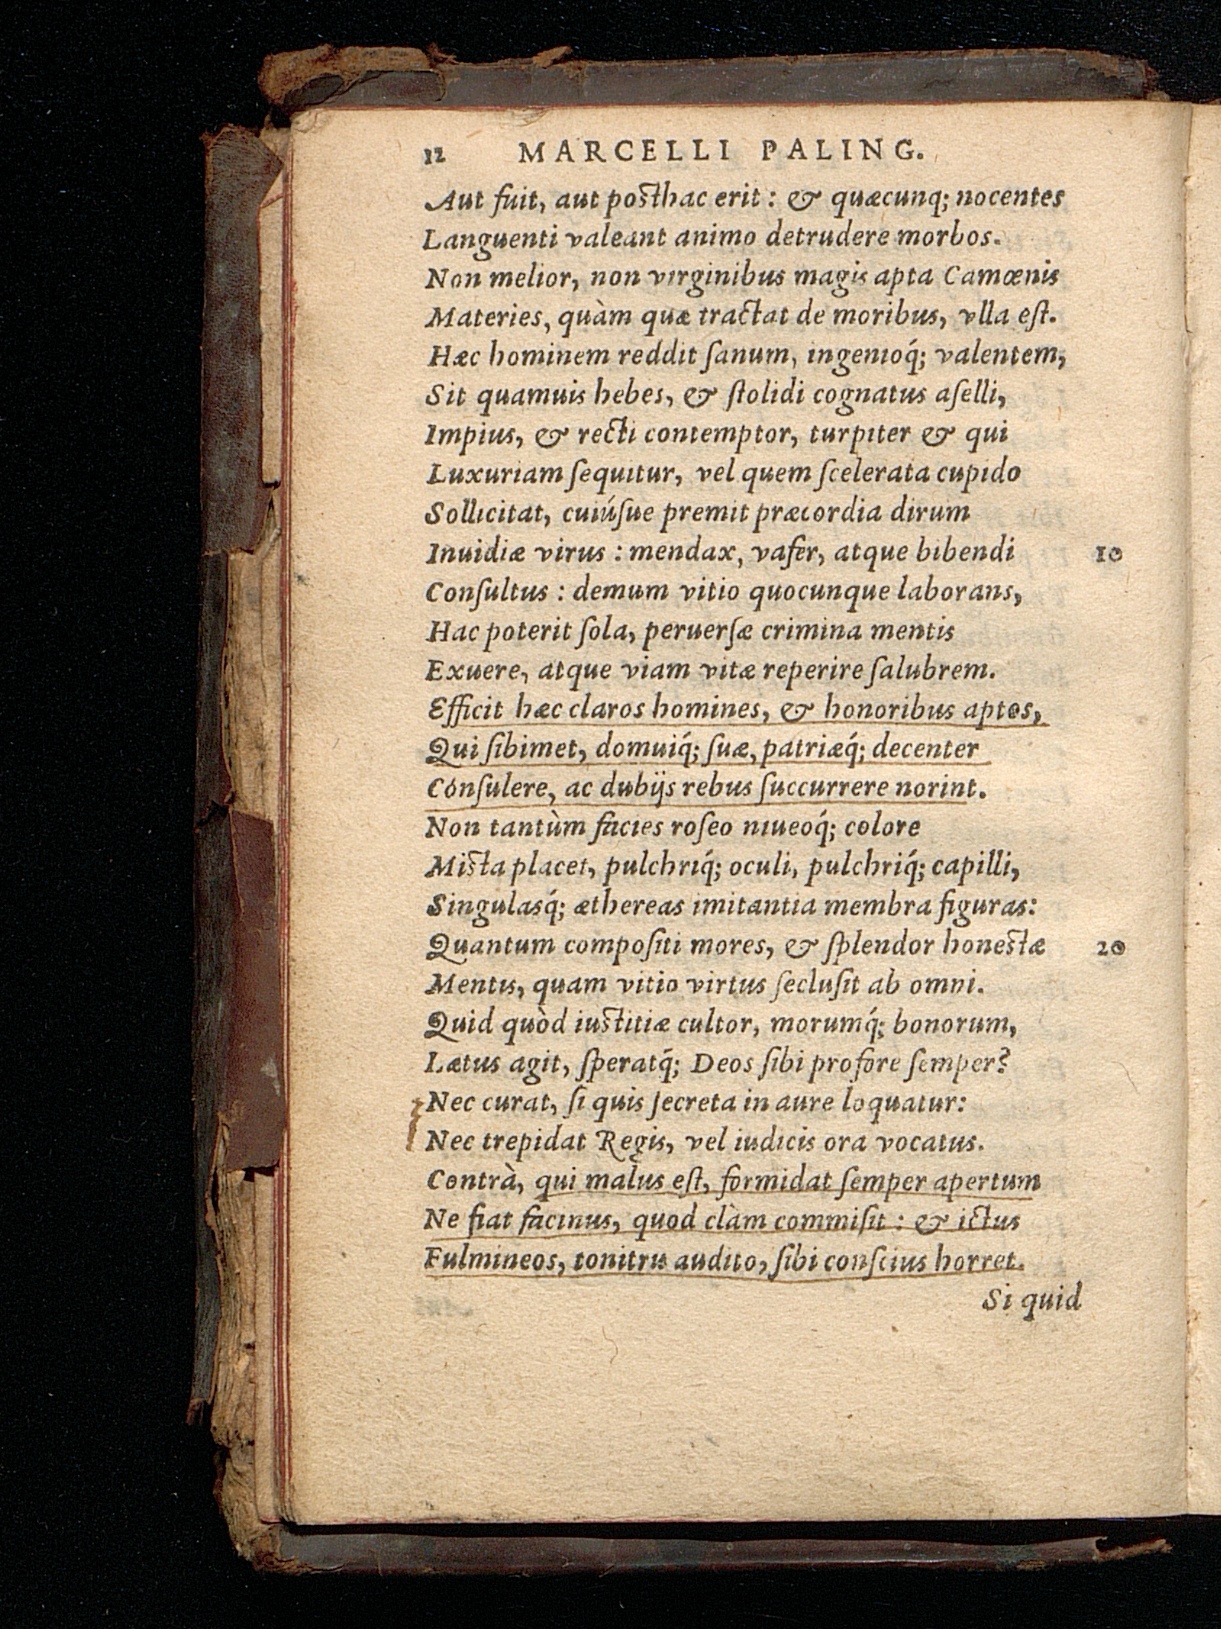 12 MARCELLI PALING.
Aut fuit, aut posthac erit : & quæcunq; nocentes
Languenti valeant animo detrudere morbos.
Non melior, non virginibus magis apta Camœnis
Materies, quàm quæ tractat de moribus, vlla eſt.
Hæc hominem reddit ſanum, ingenioq́; valentem,
Sit quamuis hebes, & ſtolidi cognatus aſelli,
Impius, & recti contemptor, turpiter & qui
Luxuriam ſequitur, vel quem ſcelerata cupido
Sollicitat, cuiúſue premit præcordia dirum
Inuidiæ virus : mendax, vafer, atque bibendi 10
Conſultus : demum vitio quocunque laborans,
Hac poterit ſola, peruerſæ crimina mentis
Exuere, atque viam vitæ reperire ſalubrem.
Efficit hæc claros homines, & honoribus aptos,
Qui ſibimet, domuiq́; ſuæ, patriæq́; decenter
Cónſulere, ac dubijs rebus ſuccurrere norint.
Non tantùm facies roſeo niueoq́; colore
Mista placet, pulchriq́; oculi, pulchriq́; capilli,
Singulasq́; æthereas imitantia membra figuras:
Quantum compoſiti mores, & ſplendor honestæ 20
Mentis, quam vitio virtus ſecluſit ab omni.
Quid quòd iustitiæ cultor, morumq́; bonorum,
Lætus agit, ſperatq́; Deos ſibi profore ſemper?
Nec curat, ſi quis ſecreta in aure loquatur:
Nec trepidat Regis, vel iudicis ora vocatus.
Contrà, qui malus eſt, formidat ſemper apertum
Ne fiat facinus, quod clàm commiſit : & ictus
Fulmineos, tonitru audito, ſibi conſcius horret.
Si quid